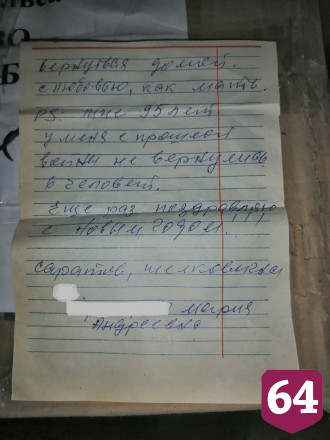 вернуться домой.
с любовью, как мать.
P.S. мне 95 лет
у меня с прошлой
войны не вернулись
6 человек.
Еще раз поздравляю
с новым годом!!!
Саратов,
Мария
Андреевна
64